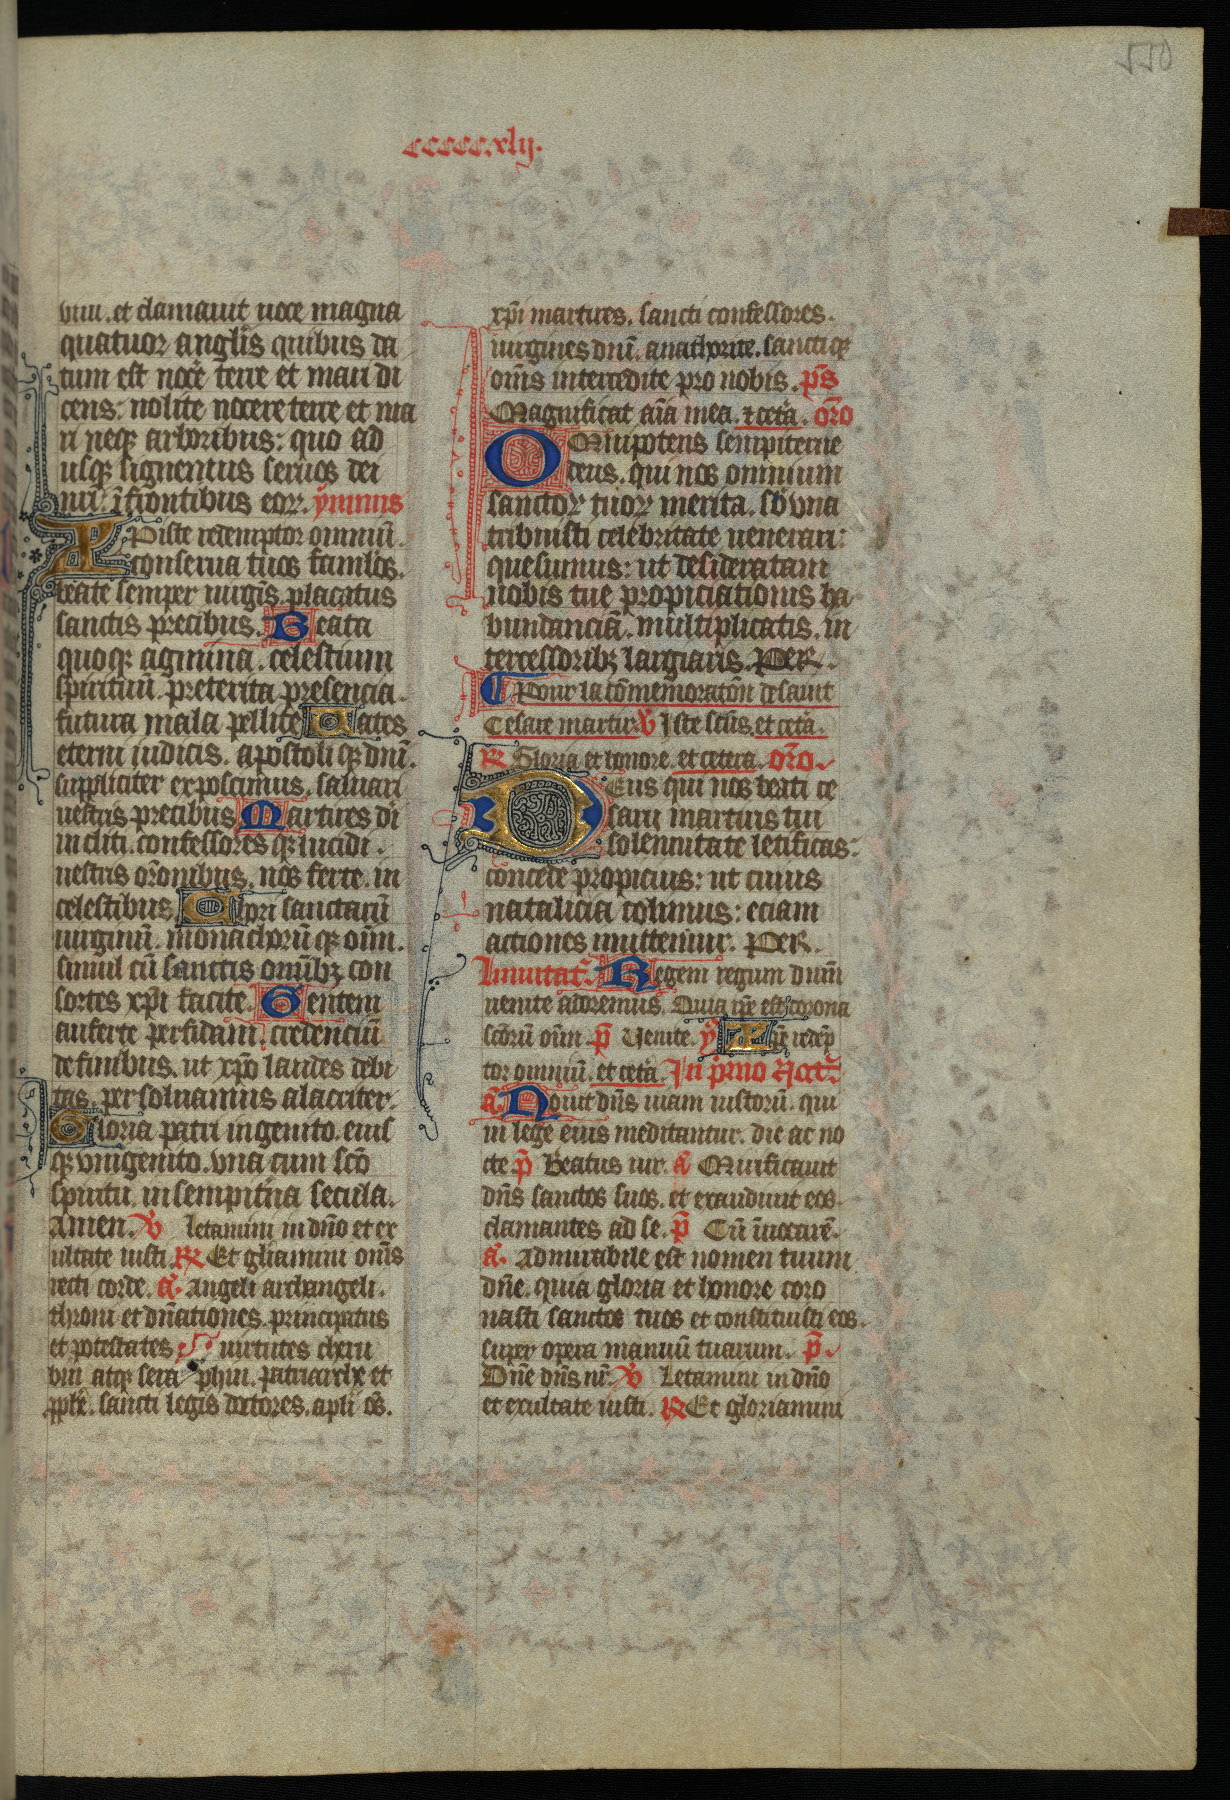 550
ccccc.xlij.
viui. et clamauit uoce magna
quatuor anglis quibus da
tum est noce͛ terre et mari di
cens: nolite nocere terre et ma
ri neqꝫ arboribus: quo ad
usqꝫ signentus seruos dei
nr̄i. ī frontibus eoꝝ. ymnus
Xpiste redemptor omniū.
conserua tuos famlos.
beate semper uirgis̄ placatus
sanctis precibus. Beata
quoqꝫ agmina. celestium
spirituū. preterita presencia.
futura mala pellite. Uates
eterni iudicis. apostoli qꝫ dnī.
suppliciter exposcimus. saluari
uestris precibus. Martires di
incliti. confessores qꝫ lucidi.
uestris orōnibus. nos ferte in
celestibus. Chori sanctarū
uirginū. monachorū qꝫ oīm.
simul cū sanctis omībꝫ con
sortes xp̄i facite. Gentem
auferte perfidam. credenciū
de finibus. ut xp̄o laudes debi
tas. persoluamus alacriter.
Gloria patri ingenito. eius
qꝫ vnigenito. vna cum sc̄o
spiritu. in sempit͛na secula.
Amen. ℣ letamini in dn̄o et ex
ultate iusti. ℟ Et gliamini omīs
recti corde. a͛. Angeli archangeli.
throni et dn̄ationes. principatus
et potestates uirtutes cheru
bin atqꝫ sera phin. patriarche et
pphe͛. sancti legis doctores. apli oēs.
xp̄i martires. sancti confessores.
uirgines dnī. anachorite. sanctiqꝫ
omīs intercedite pro nobis. ps̄
Magnificat aīa mea. ⁊ cet͛a. or̄o
Omnipotens sempiterne
deus. qui nos omnium
sanctoꝝ tuoꝝ merita. sb̄ vna
tribuisti celebritate uenerari:
quesumus: ut desideratam
nobis tue propiciationis ha
bundanciā. multiplicatis. in
tercessoribꝫ largiaris. Per.
Pour la cōmemoratōn de saint
Cesare martir. ℣ Iste scūs. et cet͛a.
℟ Gloria et honore. et cetera. or̄o
Deus qui nos beati ce
sarii martiris tui
solennitate letificas:
concede propicius: ut cuius
natalicia colimus: eciam
actiones imittemur. Per.
Inuitat͛. Regem regum dnm̄
uenite adoremus. Quia ip̄e est corona
sc̄orū oīm. p̄ Uenite. y͛ Xp̄e redēp
tor omniū. et cet͛a. In pr̄mo Noct͛.
a͛. Nouit dn̄s uiam iustorū. qui
in lege eius meditantur. die ac no
cte p̄ Beatus uir. a͛ Mirificauit
dn̄s sanctos suos. et exaudiuit eos
clamantes ad se. p̄ Cū īuocarē.
a͛. Admirabile est nomen tuum
dn̄e. quia gloria et honore coro
nasti sanctos tuos et constituisti eos.
super opera manuū tuarum. p̄.
Dn̄e dn̄s nr̄. ℣ Letamini in dn̄o
et exultate iusti. ℟ Et gloriamini